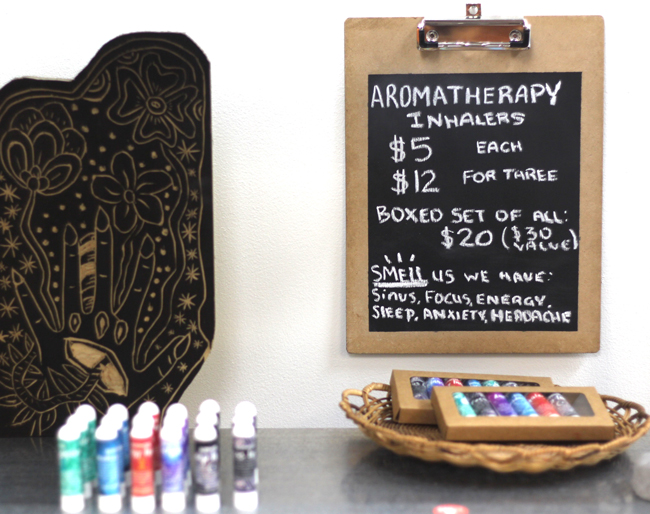 AROMATHERAPY
INHALERS
$5 EACH
$12 FOR THREE
BOXED SET OF ALL:
$20 ($30 VALUE)
SMELL US WE HAVE:
Sinus, FOCUS, ENERGY,
SLEEP, ANXIETY, HEADACHE